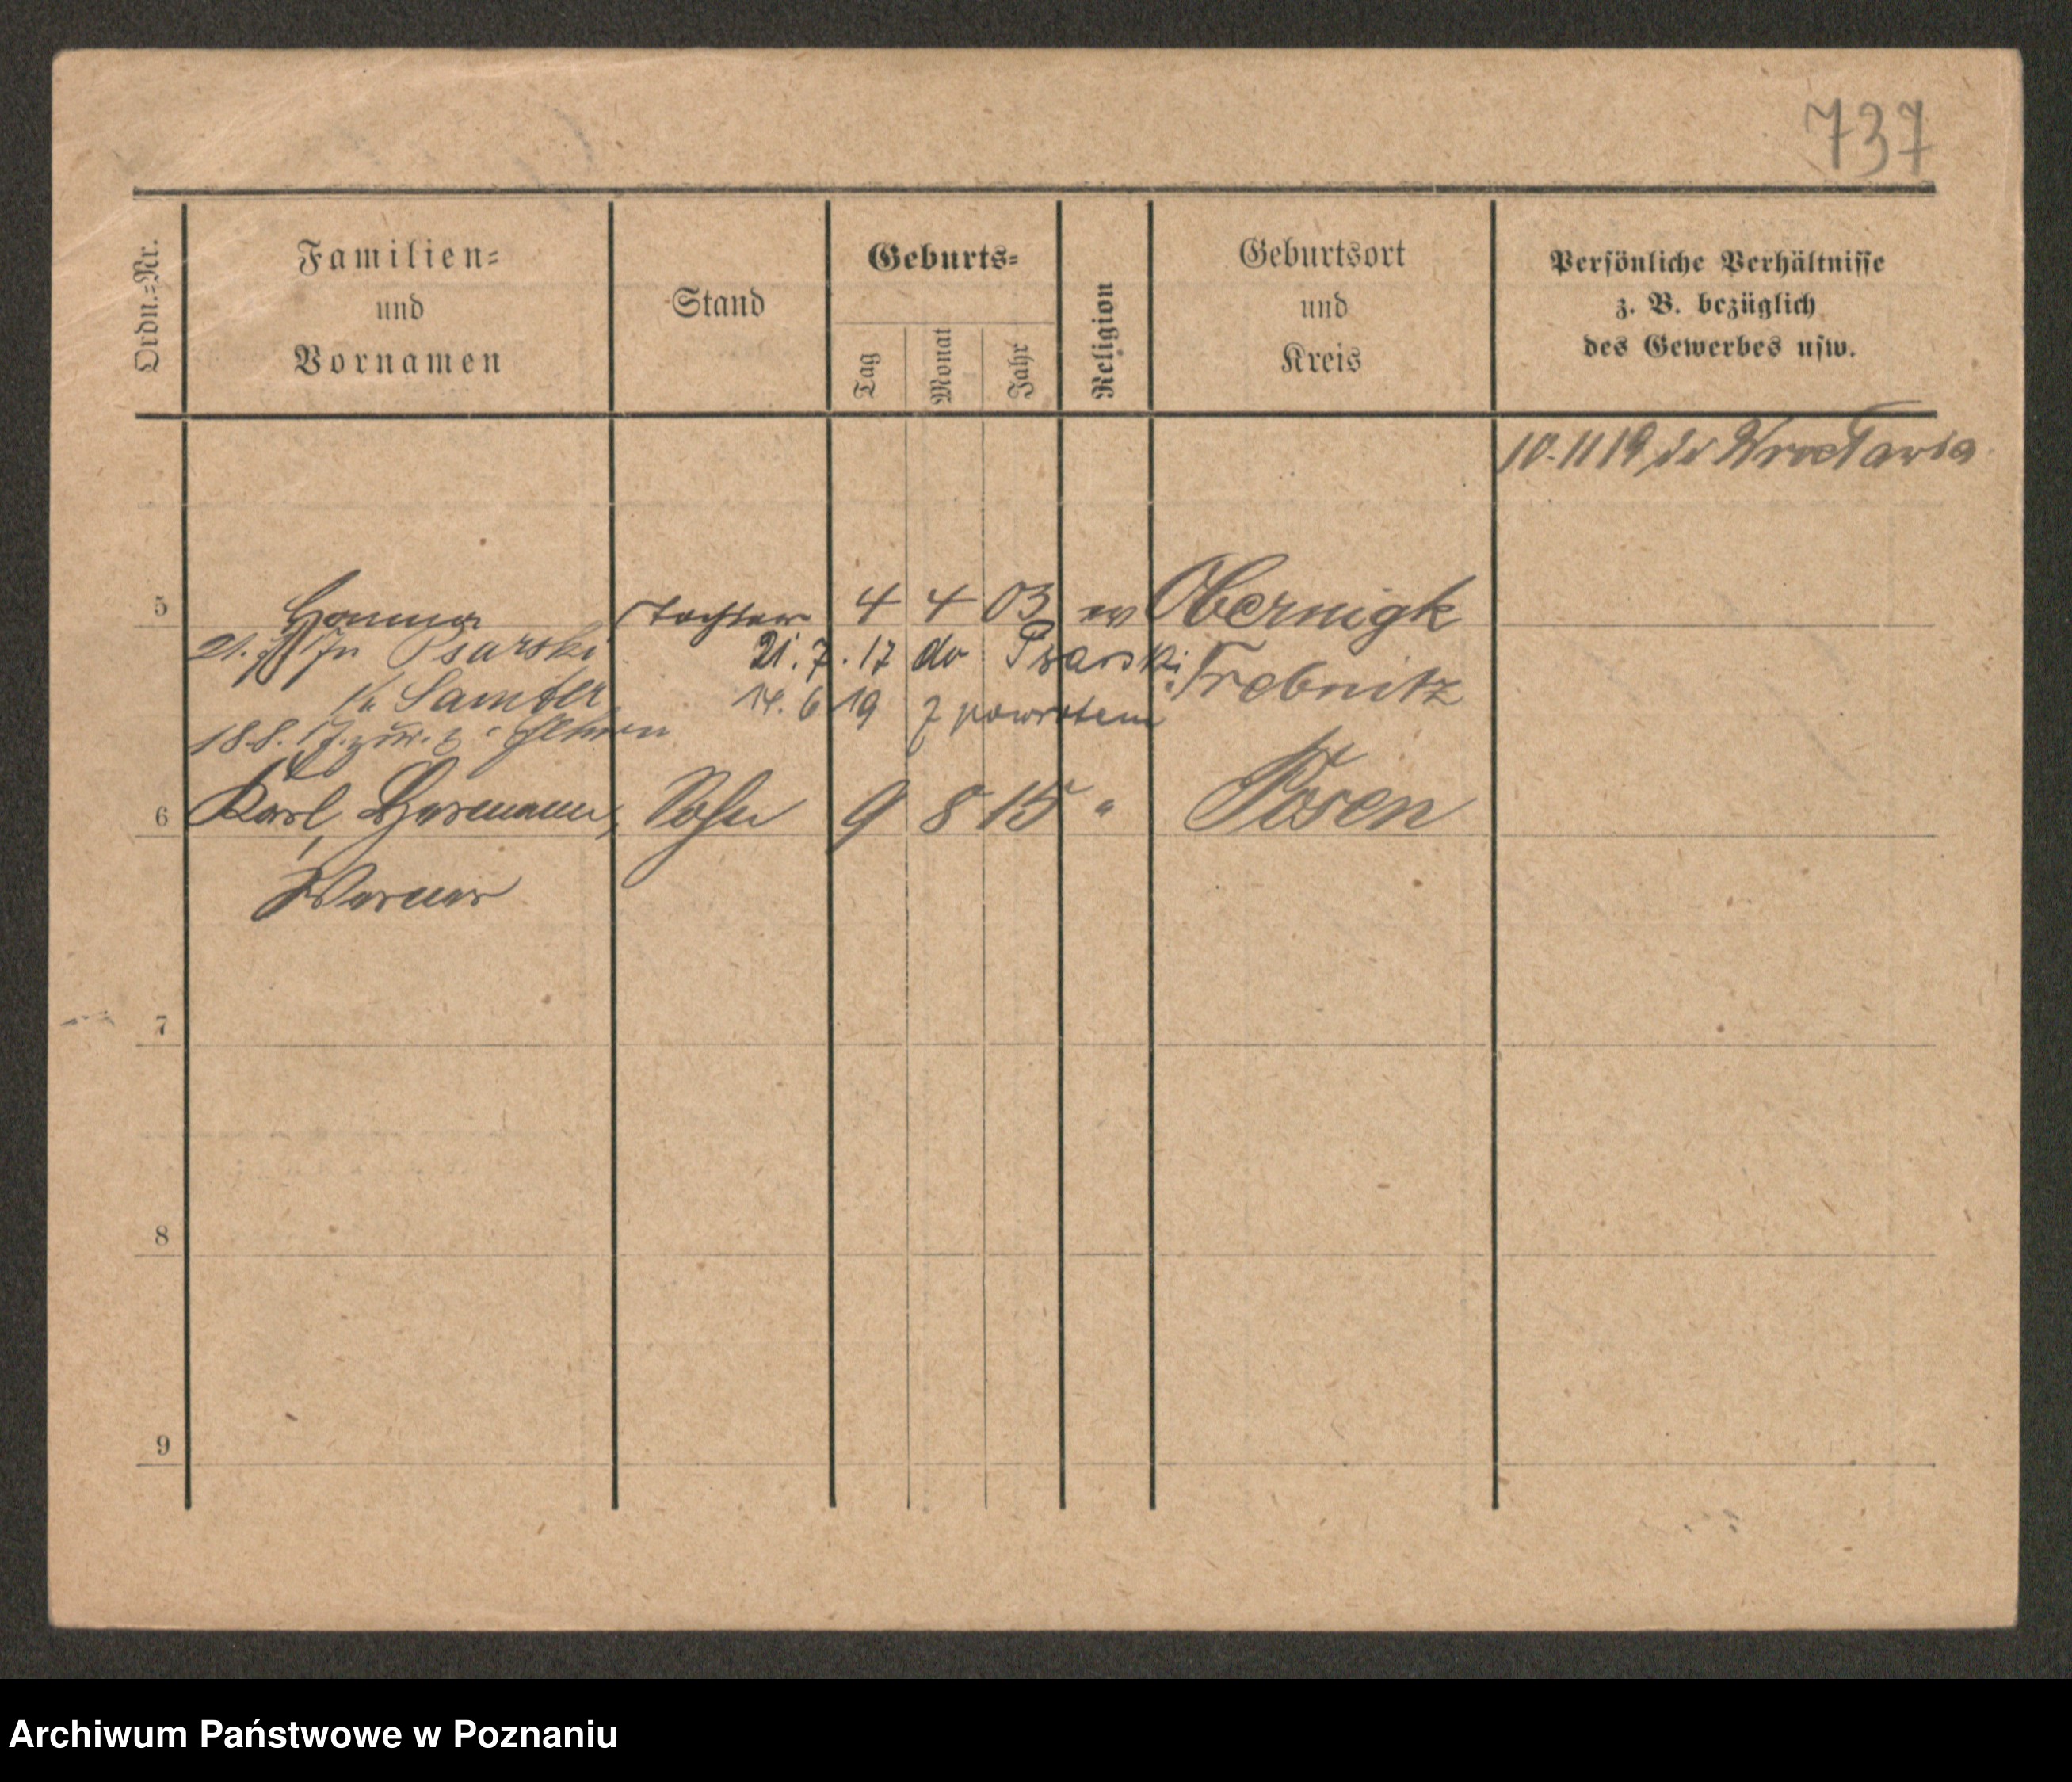 737
Ordn.=Nr.
Familien=
und
Vornamen
Stand
Geburts=
Tag
Monat
Jahr
Religion
Geburtsort
und
Kreis
Persönliche Verhältnisse
z. B. bezüglich
des Gewerbes usw.
10.11 19 do Wrocławia
5 Hanna Tochter 4 4 03 ev Obernigk
21. 7. 17 n Psarski 21. 7. 17 do Psarski Trebnitz
Samter 14. 6 19 z powrotem
18.8. 17. zur. z. Eltern
6 Karl, Hermann, Sohn 9 8 15 " Posen
Werner
7
8
9
Archiwum Państwowe w Poznaniu